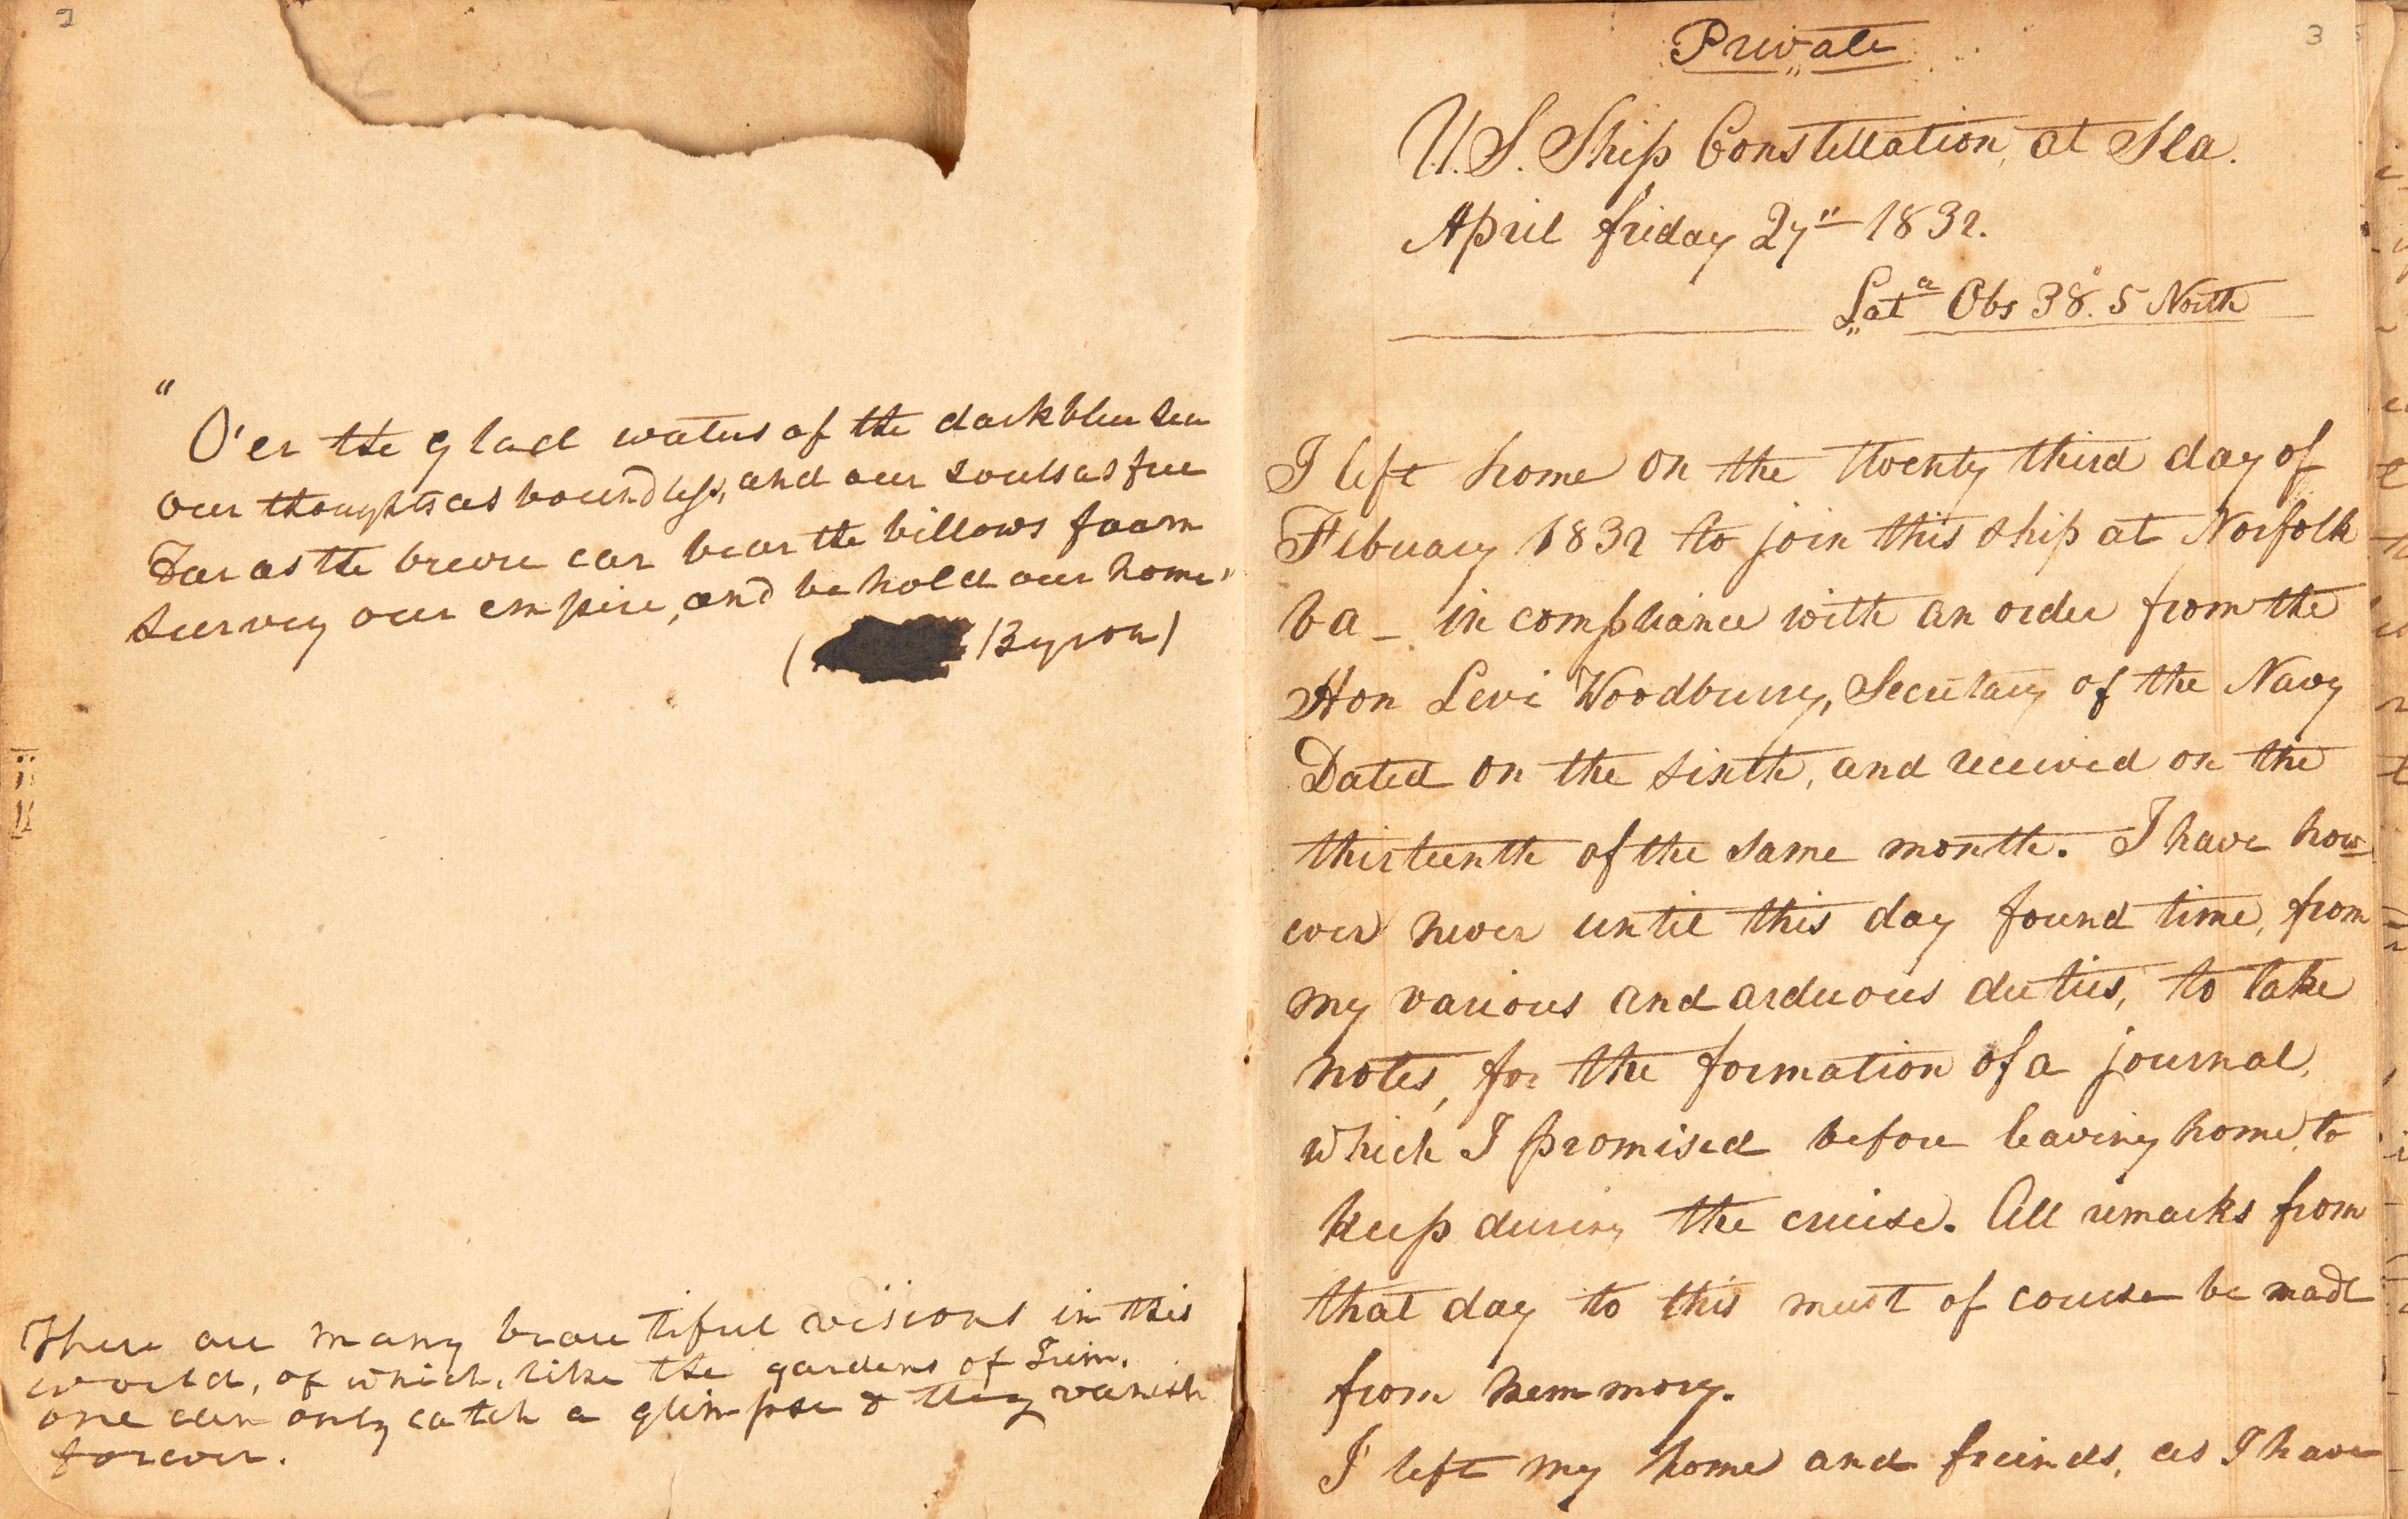 "
O'er the glad waters of the dark blue sea
our thoughts as boundless, and our souls as free
Far as the breese can bear the billows foam
Survey our empire, and behold our home"
( Byron)
There are many beautiful visions in this
world, of which, like the gardens of Irim,
one can only catch a glimpse & they vanish
forever.
3
Private
U.S. Ship Constellation, at Sea.
April friday 27" 1832.
Lat a Obs 38°. 5 North
I left home on the twenty third day of
Febuary 1832 to join this ship at Norfolk
Va - in compliance with an order from the
Hon Levi Woodburry, Secretary of the Navy
Dated on the sixth, and received on the
thirteenth of the same month. I have how
ever never until this day found time, from
my various and arduous duties, to take
notes, for the formation of a journal,
which I promised before leaving home, to
keep during the cruise. All remarks from
that day to this must of course be made
from memmory.
I left my home and freinds, as I have